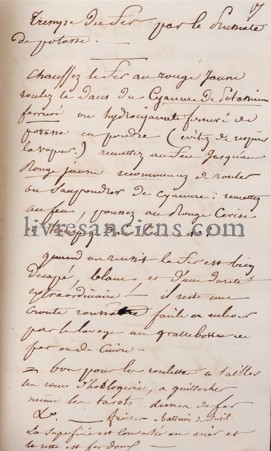 17
Trempe du Fer par le Prussiate
de potasse.
Chauffez le Fer au rouge Jaune
roulez le dans du Cyanure de Potassium
ferruré ou hydrocyanate ferruré de
potasse en poudre (évitez de respirer
la vapeur) remettez au Feu Jusqu'au
Rouge Jaune recommencez de rouler
ou saupoudrer de cyanure : remettez
au feu, poussez au Rouge Cerise
livresanciens.com
quand on réussit le Fer est bien
décapé blanc et d'une dureté
extraordinaire ! il reste une
croute roussatre facile a enlever
par le lavage au gratte-bosse
fer ou de Cuivre.
= bon pour les roulettes a tailler
les roues d'horlogerie, a guillocher
même les tarots
La superficie est convertie en acier et
le reste est fer doux